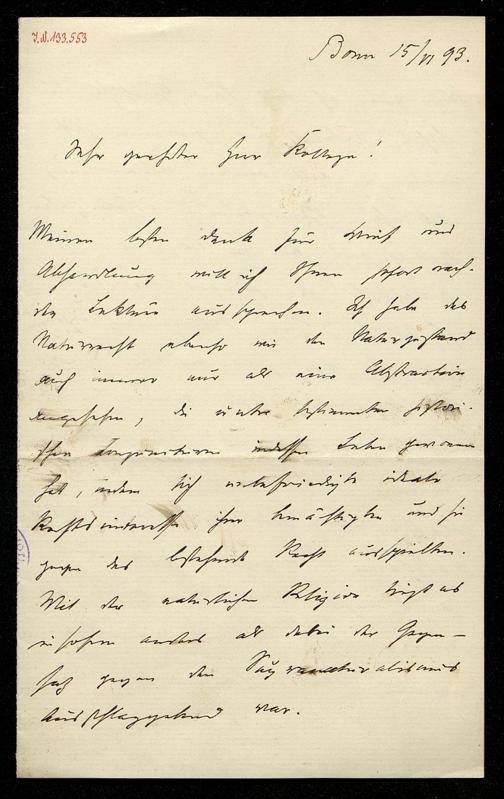 J.N. 133.553
Bonn 15/VI 93.
Sehr geehrter Herr Kollege!
Meinen besten Dank für Brief und
Abhandlung will ich Ihnen sofort nach
der Lektüre aussprechen. Ich habe das
Naturrecht ebenso wie den Naturzustand
auch immer nur als eine Abstraktion
angesehen, die unter bestimmten histori-
schen Leben gewonnen
hat, indem sich unbefriedigte ideale
Rechtsinteressen ihrer bemächtigten und sie
gegen das bestehende Recht ausspielten.
Mit der natürlichen Religion liegt es
insofern anders als dabei der Gegen-
satz gegen den Supranaturalismus
ausschlaggebend war.